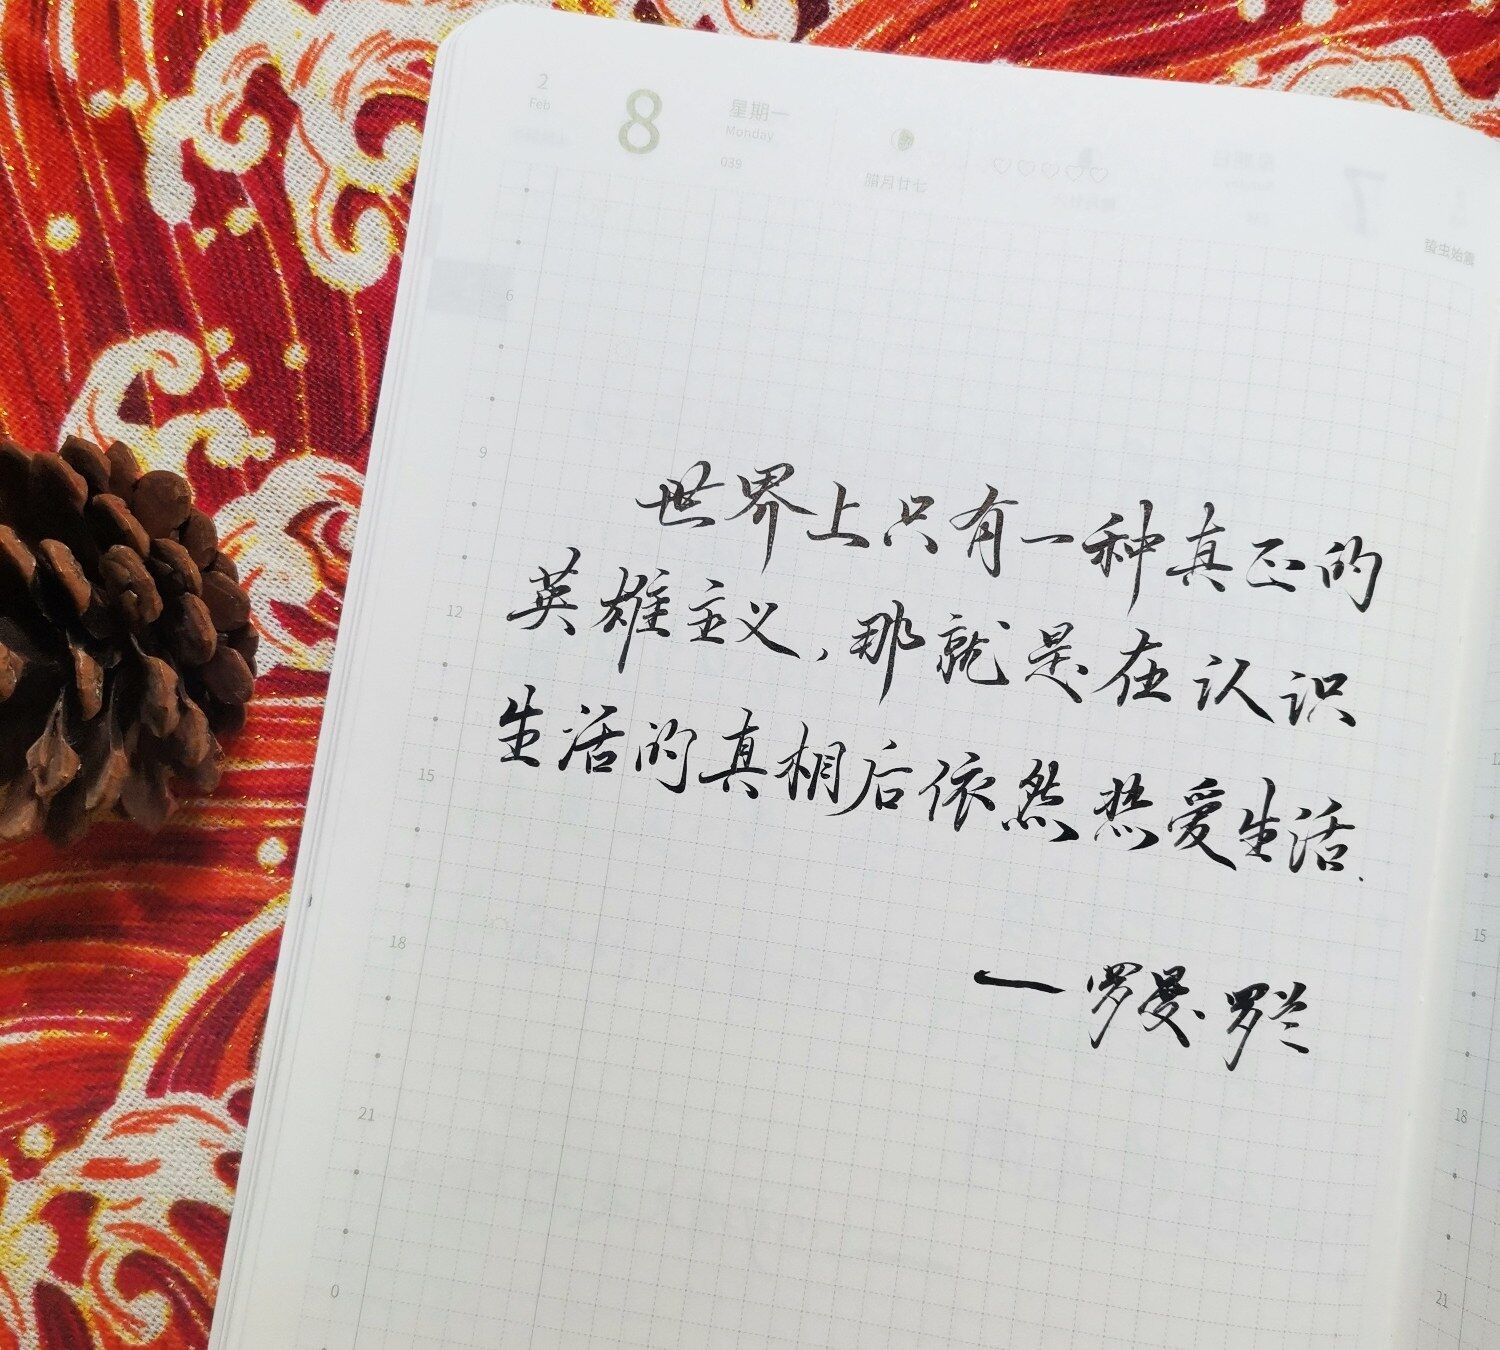 2
Feb
8
星期一
Monday
039
腊月廿七
7
萤虫始震
6
9
世界上只有一种真正的
英雄主义,那就是在认识
12
生活的真相后依然热爱生活.
15
15
18
一罗曼·罗兰
18
21
21
0